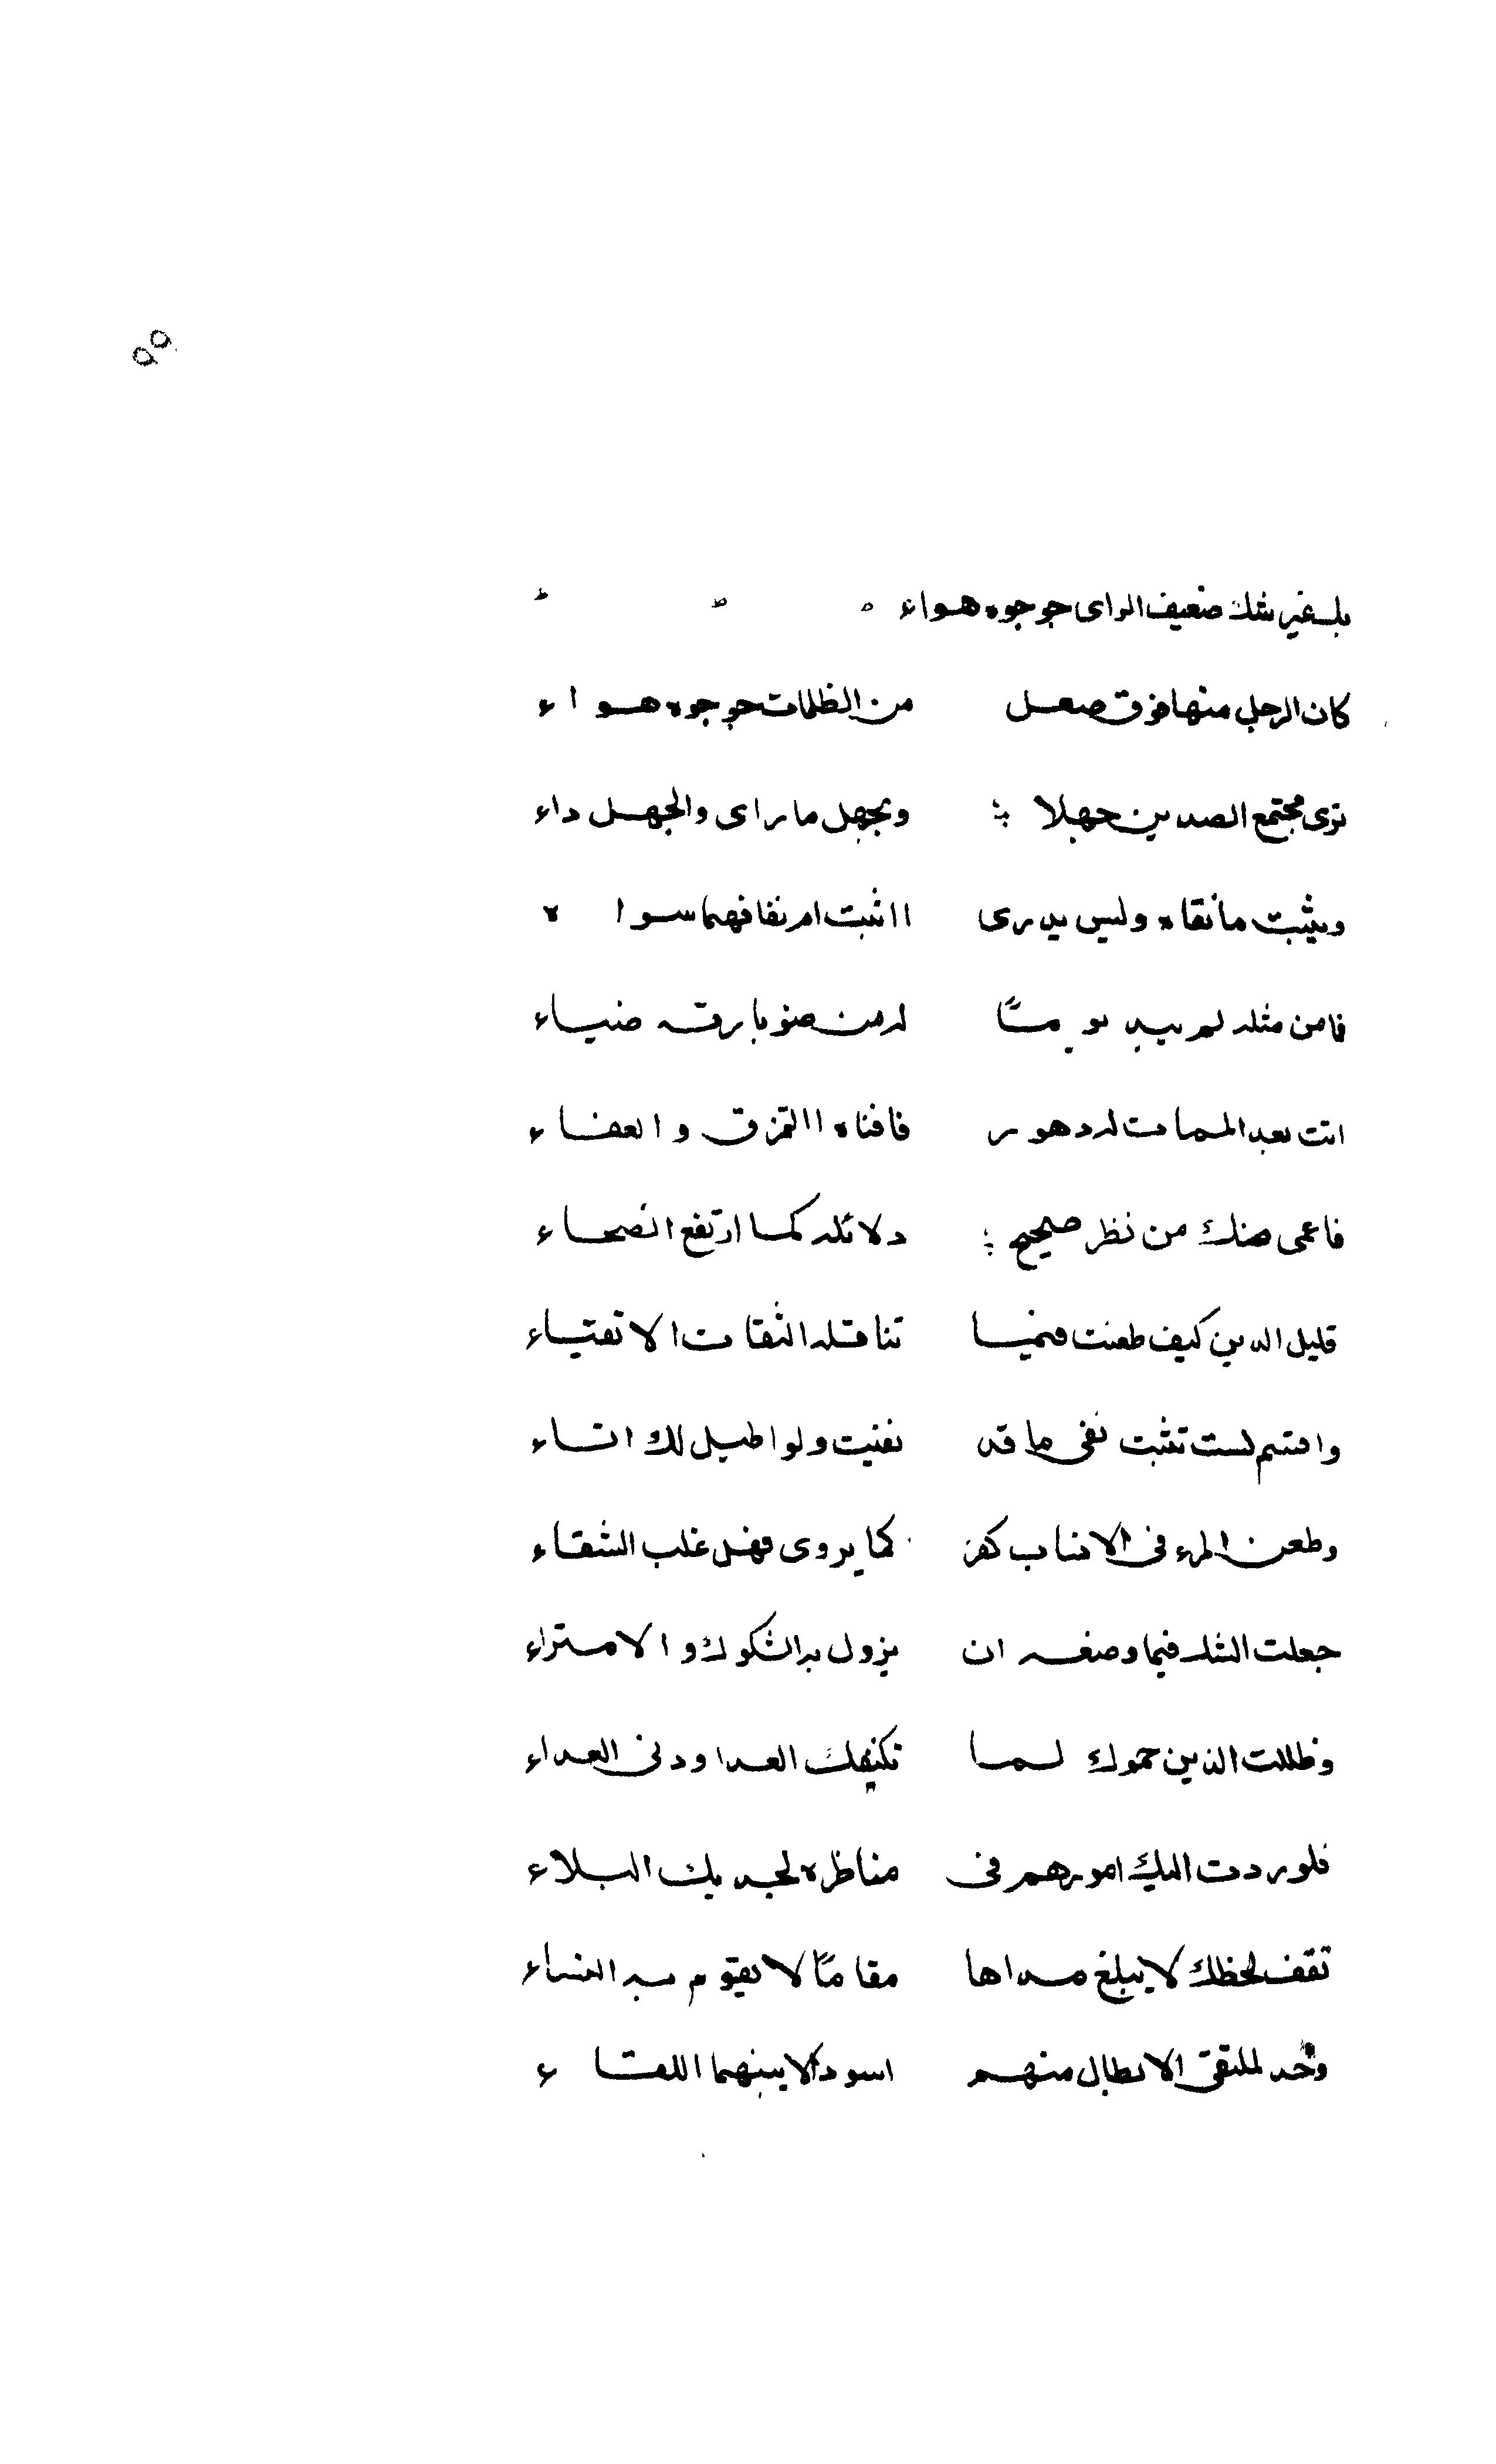 ٥٥
بل غير شك ضعيف الراى جوجوه هواء
كان الرحل منها فوق صعل من الظلمات جوجوه هواء
ترى مجتمع الضدين جهلا ويجهل ما راى والجهل داء
ويثبت ما نفاه وليس يدرى ااثبت ام نفا فهما سواء
فا من مثله لم يبد يومًا له من ضو بارقه ضياء
اتت بعد الممات له دهور فافناه االتمزق والعفاء
فاعمى عنك من نظر صحيح دلائله كما ارتفع الضحاء
قليل الدين كيف طعنت فيما تناقله الثقات الاتقياء
واقسم لست تثبت نفى ما قد نفيت ولو اطيل لك اتساء
وطعن المرء فى الانساب كفر كما يروى فهل غلب الشقاء
جعلت الشك فيما وصفه ان يزول به الشكوك والامتراء
وظللت الذين حموك لما تكنفك العدا ودنى العداء
فلو ردت اليك امورهم فى مناظره لجد بك البلاء
تقف لحظك لا يبلغ مداها مقامًا لا يقوم به النساء
وخد لملتقى الابطال منهم اسودا لا ينهما اللقاء